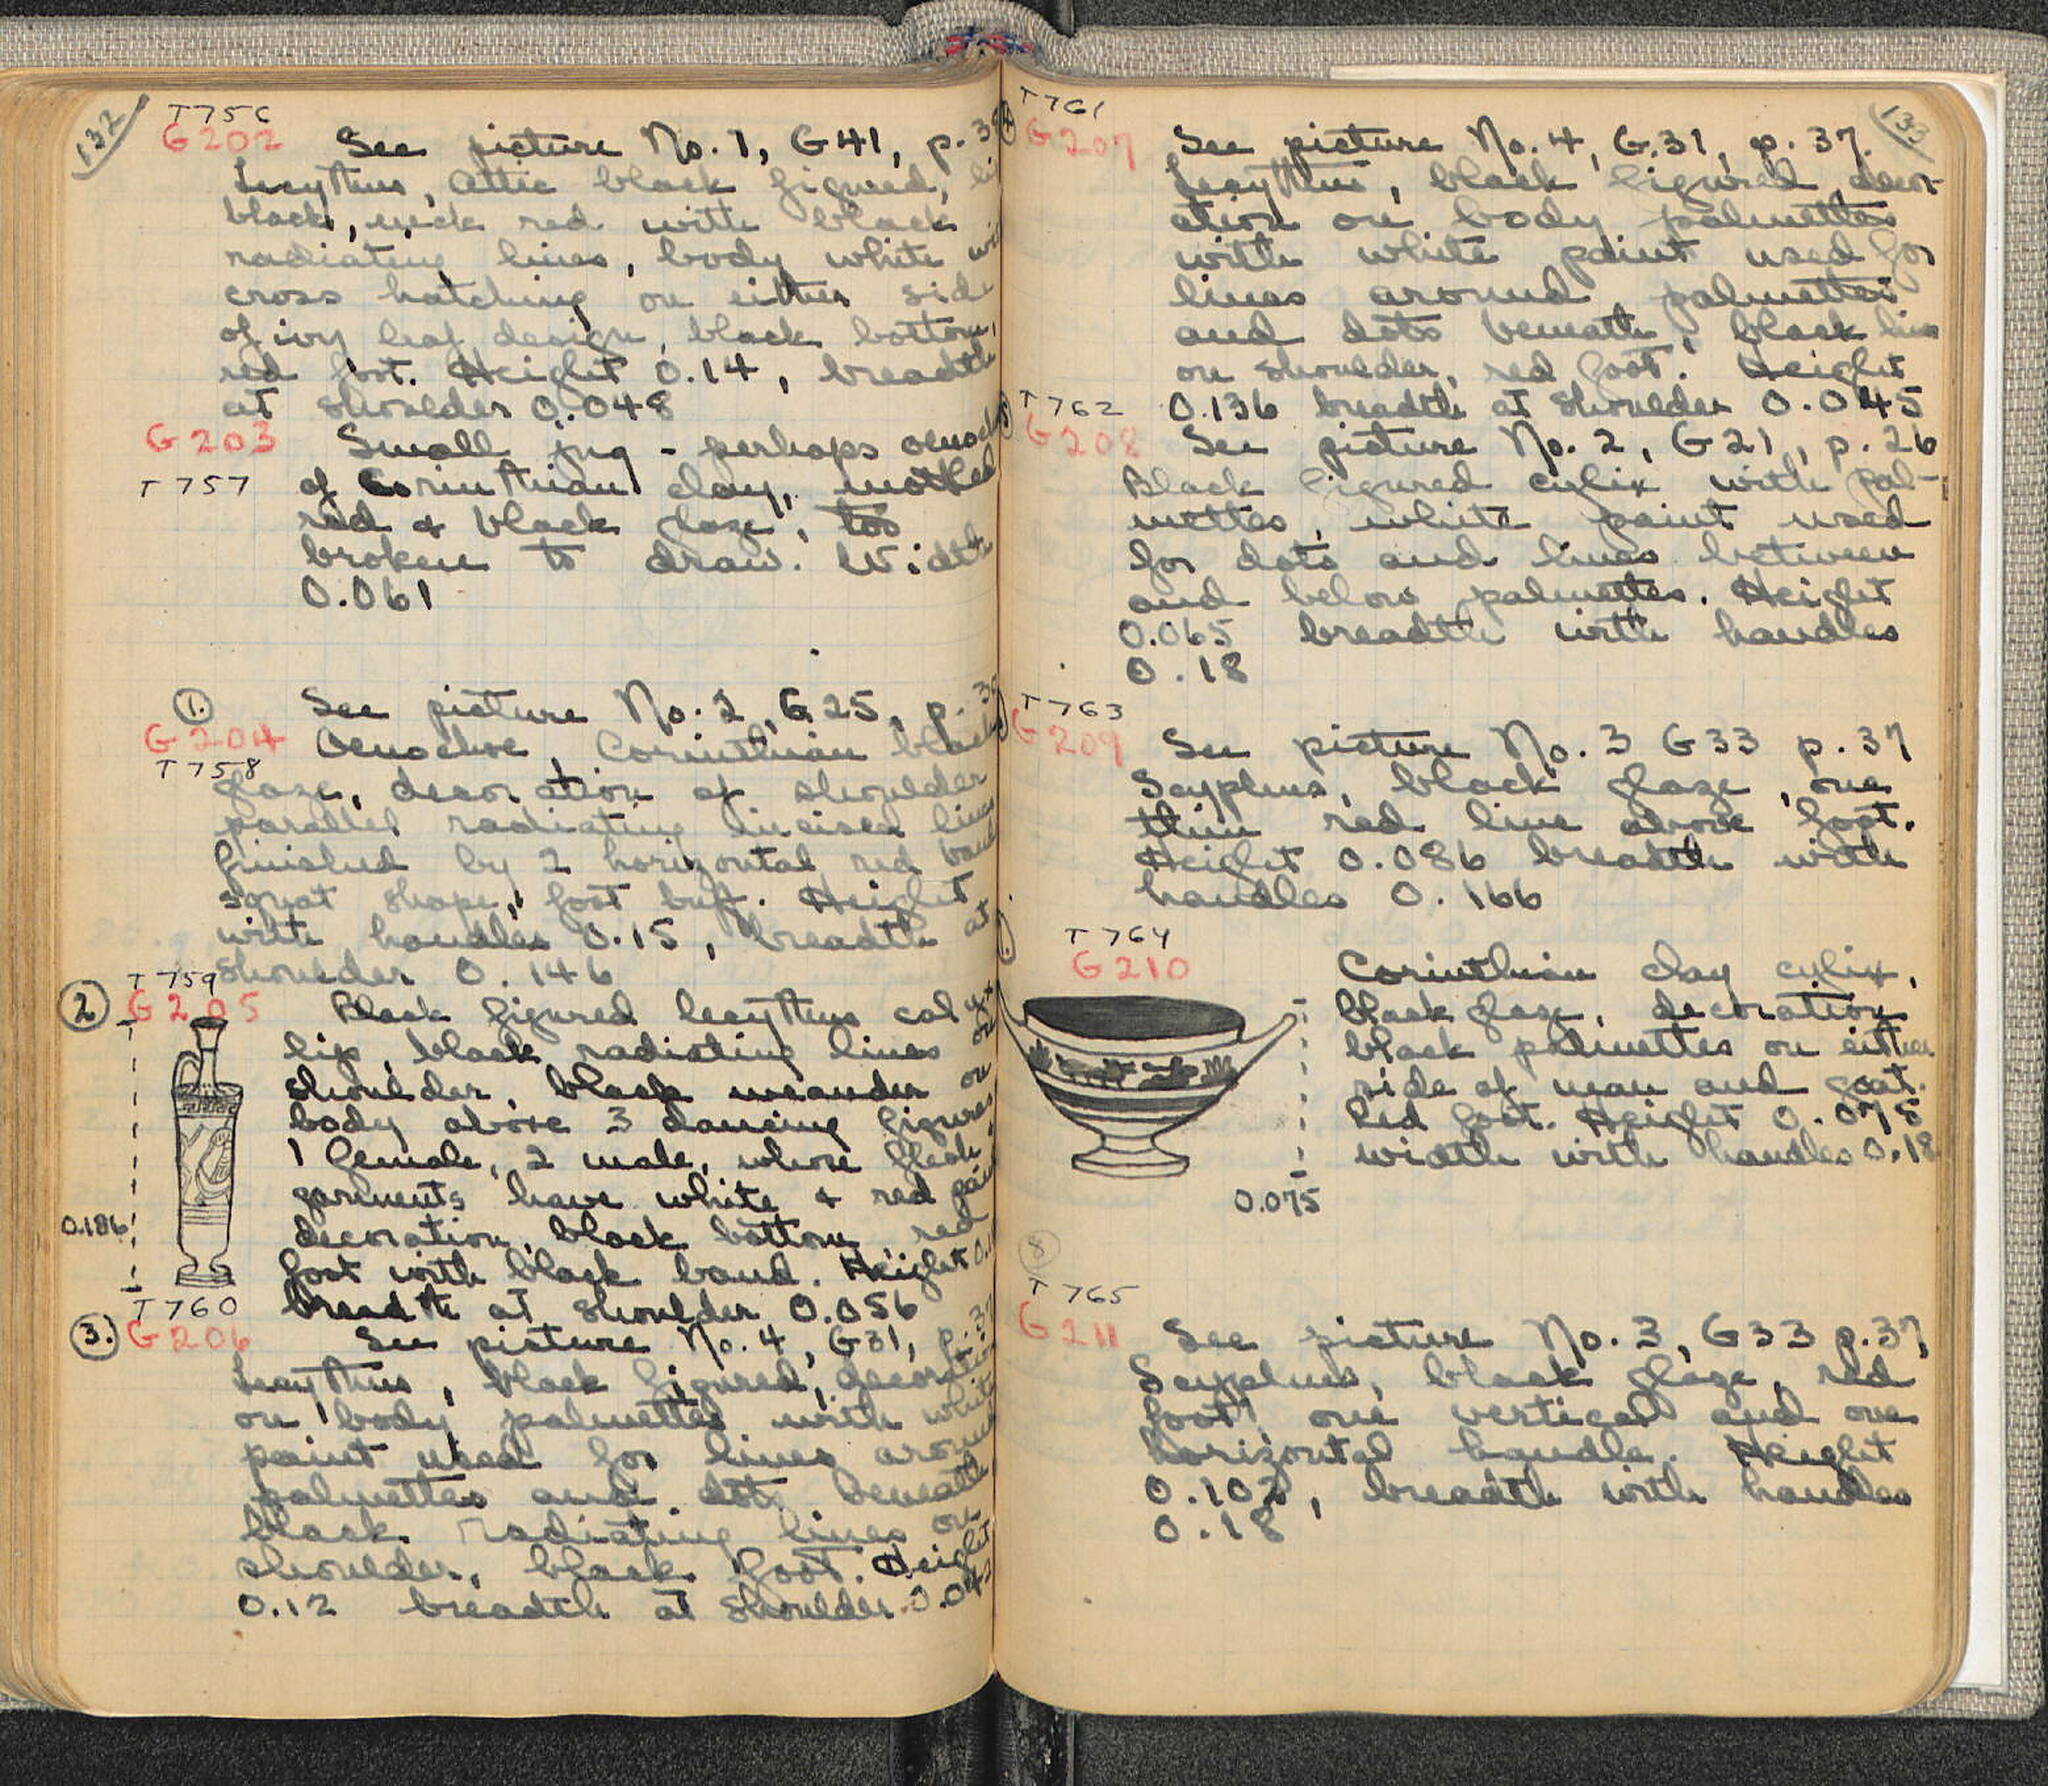 132
T756
G202 See picture No. 1, G41, p.
Lecythus, Attic black figured, lip
black, neck red with black
radiating lines, body white with
cross hatching on either side
of ivy leaf design, black bottom,
red foot. Height 0.14, breadth
at shoulder 0.048
G203 Small jug - perhaps
T757 of Corinthian clay, mottled
red & black glaze, too
broken to draw. Width
0.061
1. See picture No. 2, G25, p.
G204 Oenochoe, Corinthian black
T758
glaze, decoration of shoulder
parallel radiating incised lines
finished by 2 horizontal red bands
squat shape, foot buff. Height
with handles 0.15, breadth at
shoulder 0.146
T759
2 G205 Black figured lecythus
lip, black radiating lines on
shoulder, black meander on
body above 3 dancing figures
1 female, 2 male, whose flesh +
garments have white & red paint
decoration, black bottom, red
0.186
foot with black band. Height
breadth at shoulder 0.056
T760
3. G206 See picture No. 4, G31, p. 37
Lecythus, black figured, decoration
on body palmettes with white
paint used for lines around
palmettes and dots beneath
black radiating lines on
shoulder, black foot. Height
0.12 breadth at shoulder 0.042
133
T761
4 G207 See picture No. 4, G.31, p. 37.
Lecythus, black figured, decor-
ation on body palmettes
with white paint used for
lines around palmettes
and dots beneath, black lines
on shoulder, red foot. Height
T762 0.136 breadth at shoulder 0.045
5 G208 See picture No. 2, G21, p. 26
Black figured cylix with pal-
mettes, white paint used
for dots and lines between
and below palmettes. Height
0.065 breadth with handles
0.18
T763
G209 See picture No. 3 G33 p. 37
Scyphus, black glaze, one
thin red line above foot.
Height 0.086 breadth with
handles 0.166
T764
G210 Corinthian clay cylix,
black glaze, decoration
black palmettes on either
side of man and goat.
Red foot. Height 0.075
width with handles 0.18
0.075
8
T765
G211 See picture No. 3, G33 p. 37,
Scyphus, black glaze, red
foot, one vertical and one
horizontal handle. Height
0.102, breadth with handles
0.18